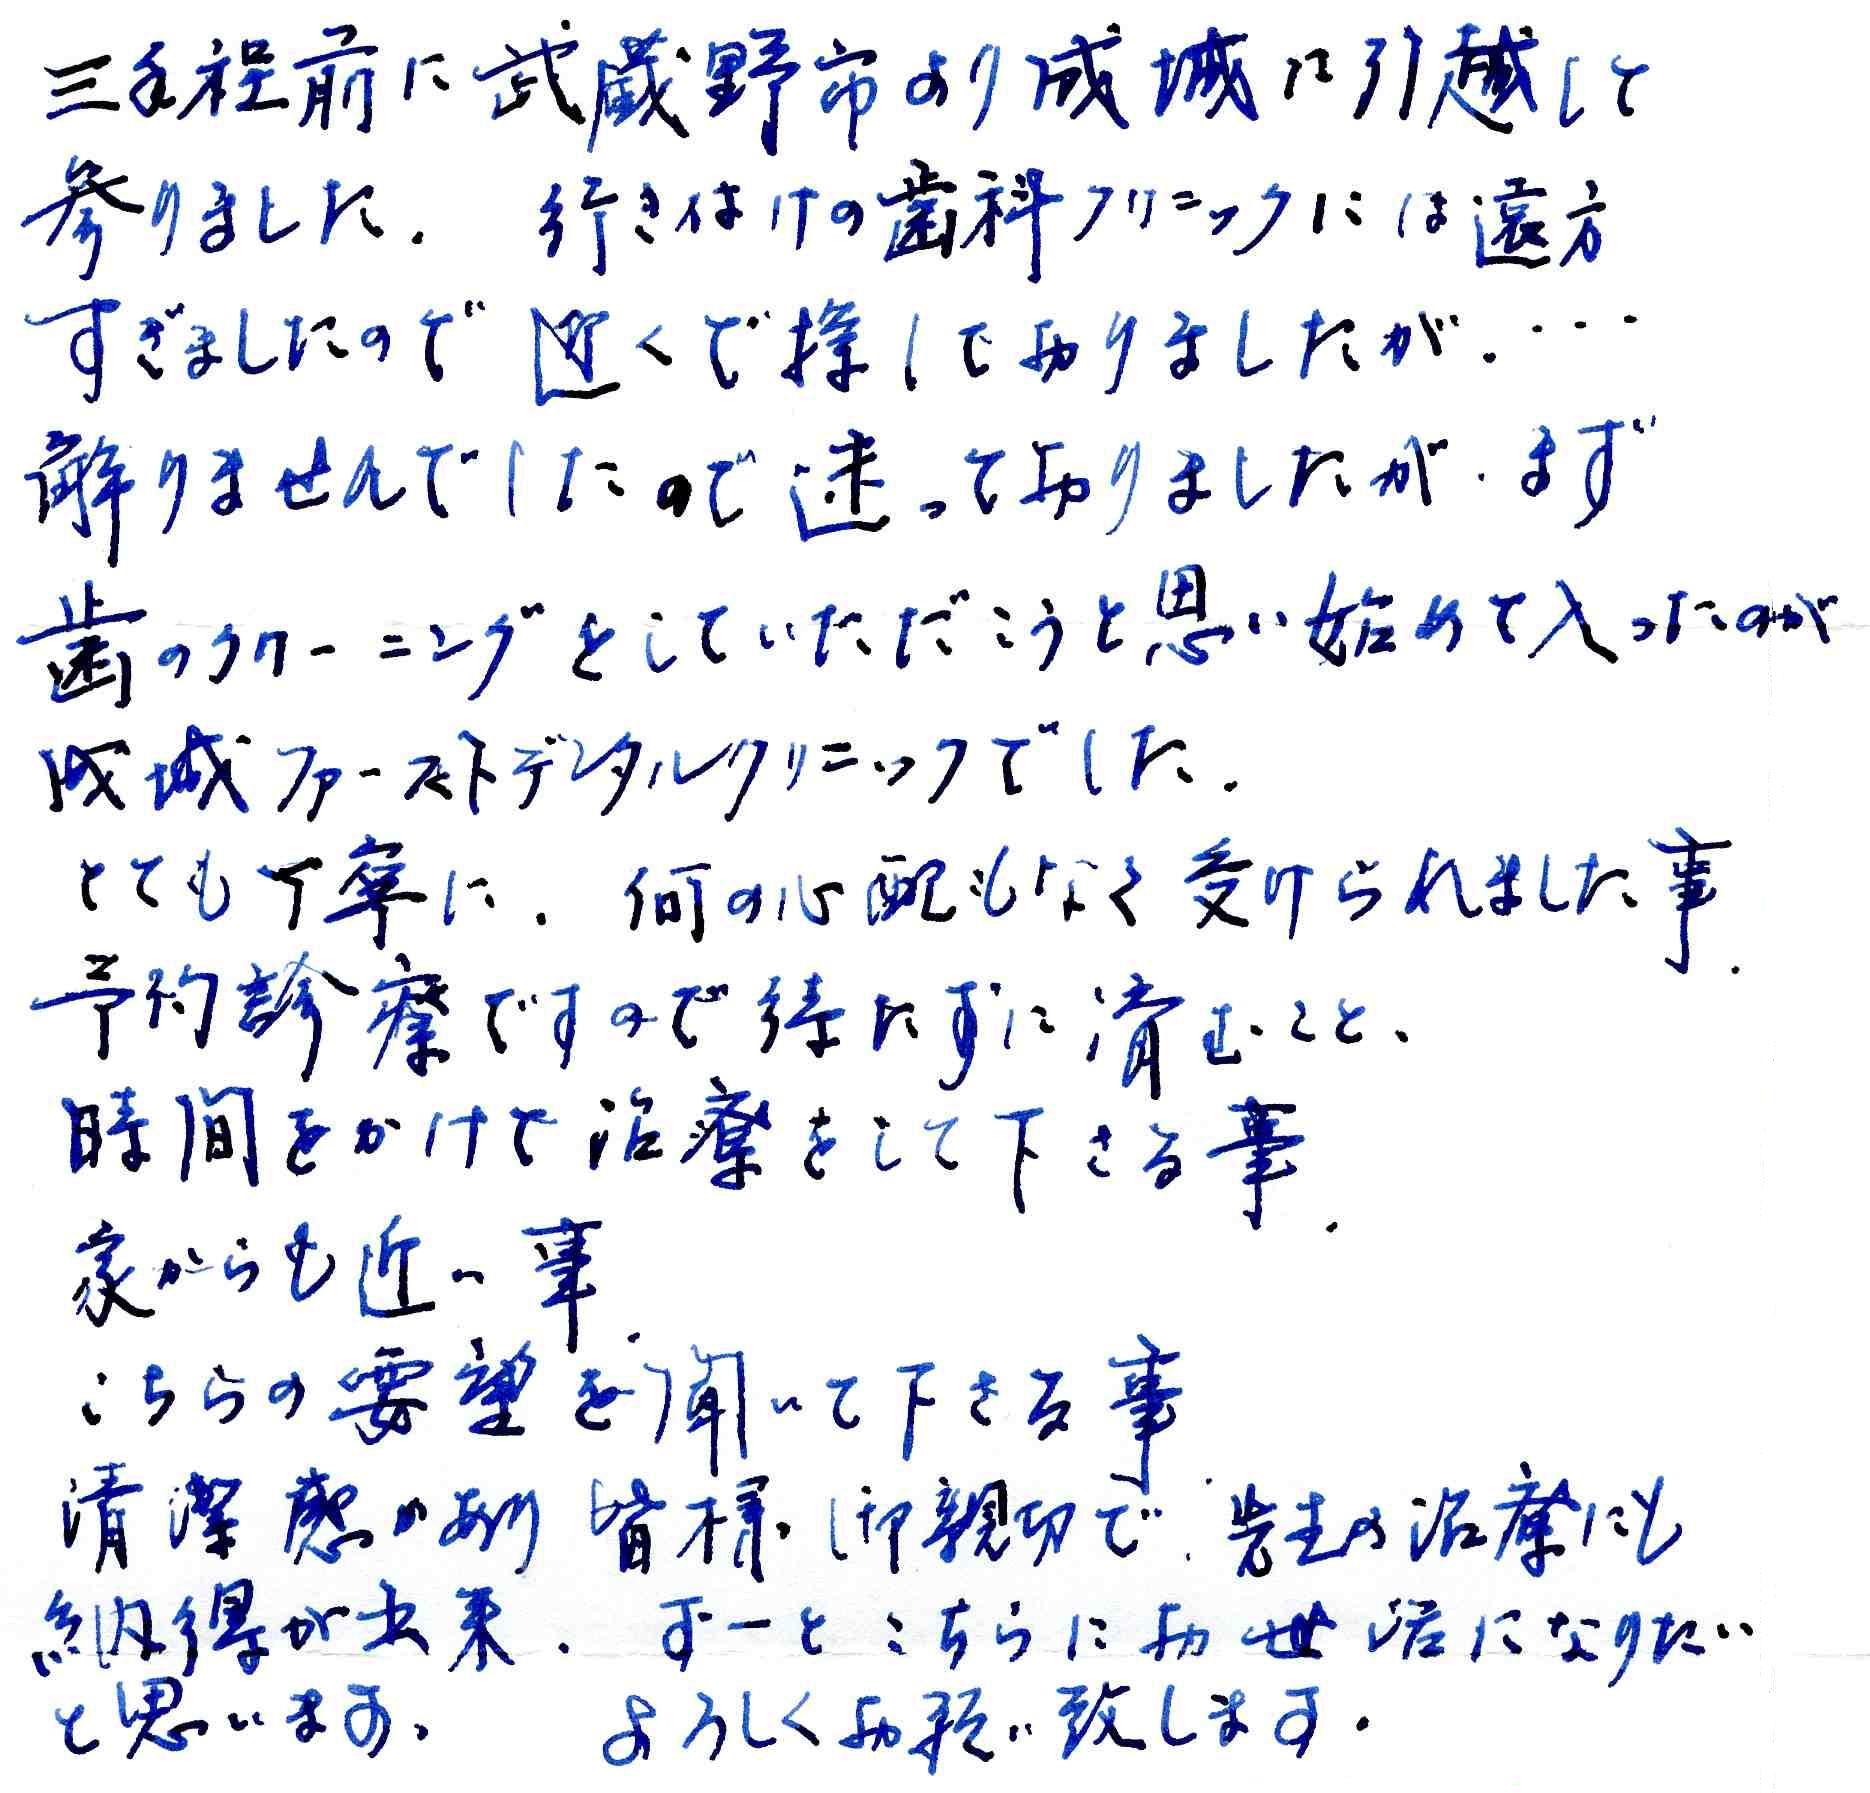 三年程前に武蔵野市より成城に引越して
参りました. 行きつけの歯科クリニックには遠方
すぎましたので 近くで探しておりましたが.・・・
解りませんでしたので迷っておりましたが.まず
歯のクリーニングをしていただこうと思い始めて入ったのが
成城ファーストデンタルクリニックでした.
とても丁寧に. 何の心配もなく受けられました事.
予約診療ですので待たずに済むこと、
時間をかけて治療をして下さる事.
家からも近い事.
こちらの要望を聞いて下さる事.
清潔感があり 皆様.御親切で. 先生の治療にも
納得が出来. ずーとこちらにお世話になりたい
と思います、 よろしくお願い致します.